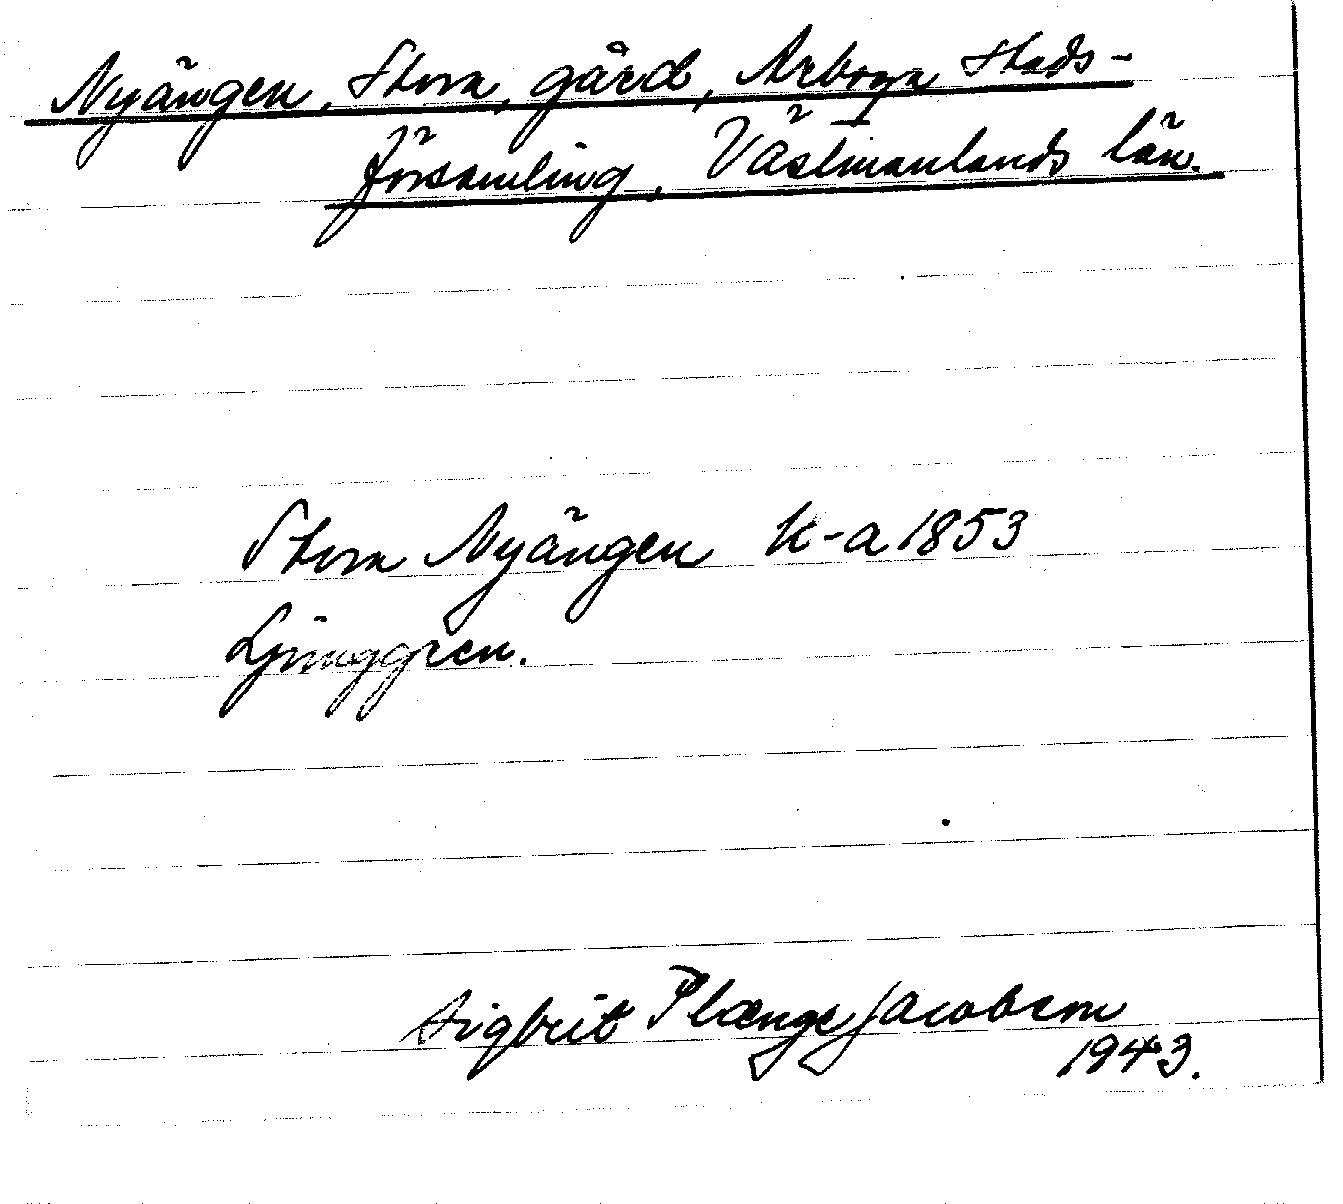 Nyängen, Stora, gård, Arboga stads-
församling, Västmanlands län.
Stora Nyängen K-a 1853
Ljunggren.
Sigbrit Plænge Jacobson
1943.